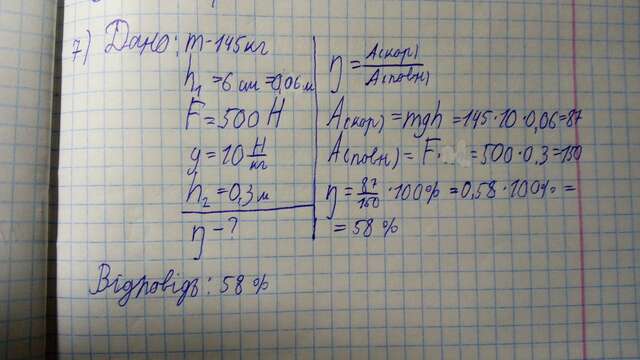 7) Дано:
m-145кг
h₁=6 см=0,06м
F=500 Н
g=10 Н/кг
h₂=0,3м
η-?
η = A(кор)/A(повн)
A(кор)=mgh=145·10·0,06=87
A(повн)=F· =500·0,3=150
η=87/150·100%=0,58·100%=
=58%
Відповідь: 58%